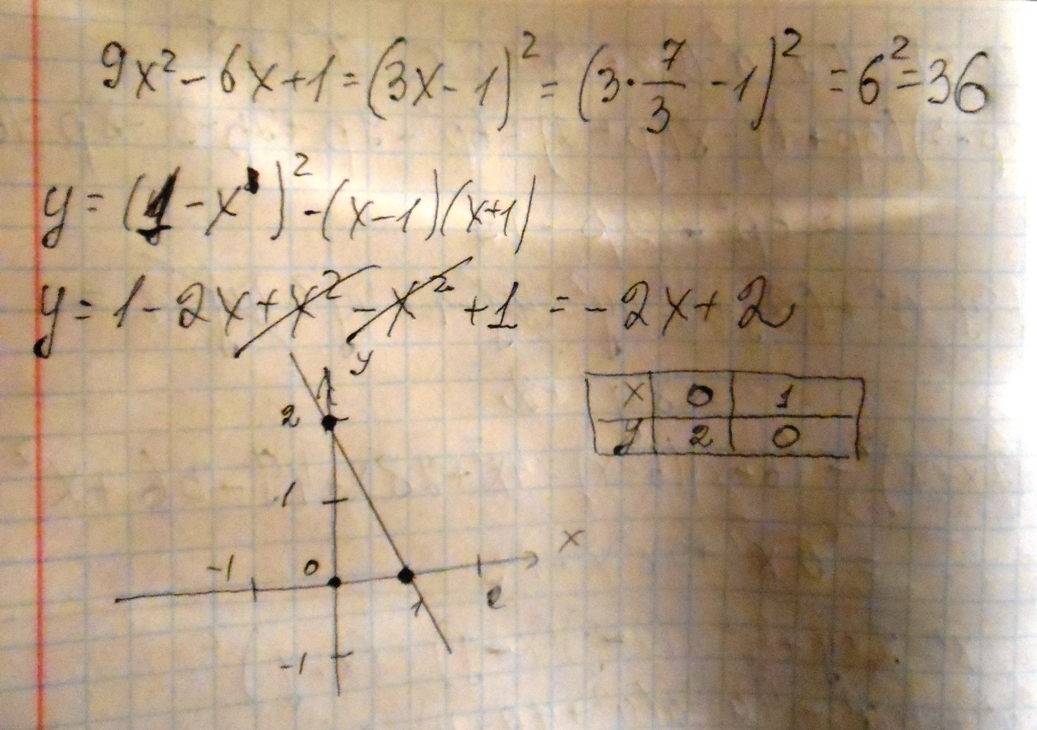 9x² - 6x + 1 = (3x - 1)² = (3·7/3 - 1)² = 6² = 36
y = (1 - x)² - (x - 1)(x + 1)
y = 1 - 2x + x² - x² + 1 = -2x + 2
y
x 0 1
2
y 2 0
1
x
-1 0
1 2
-1